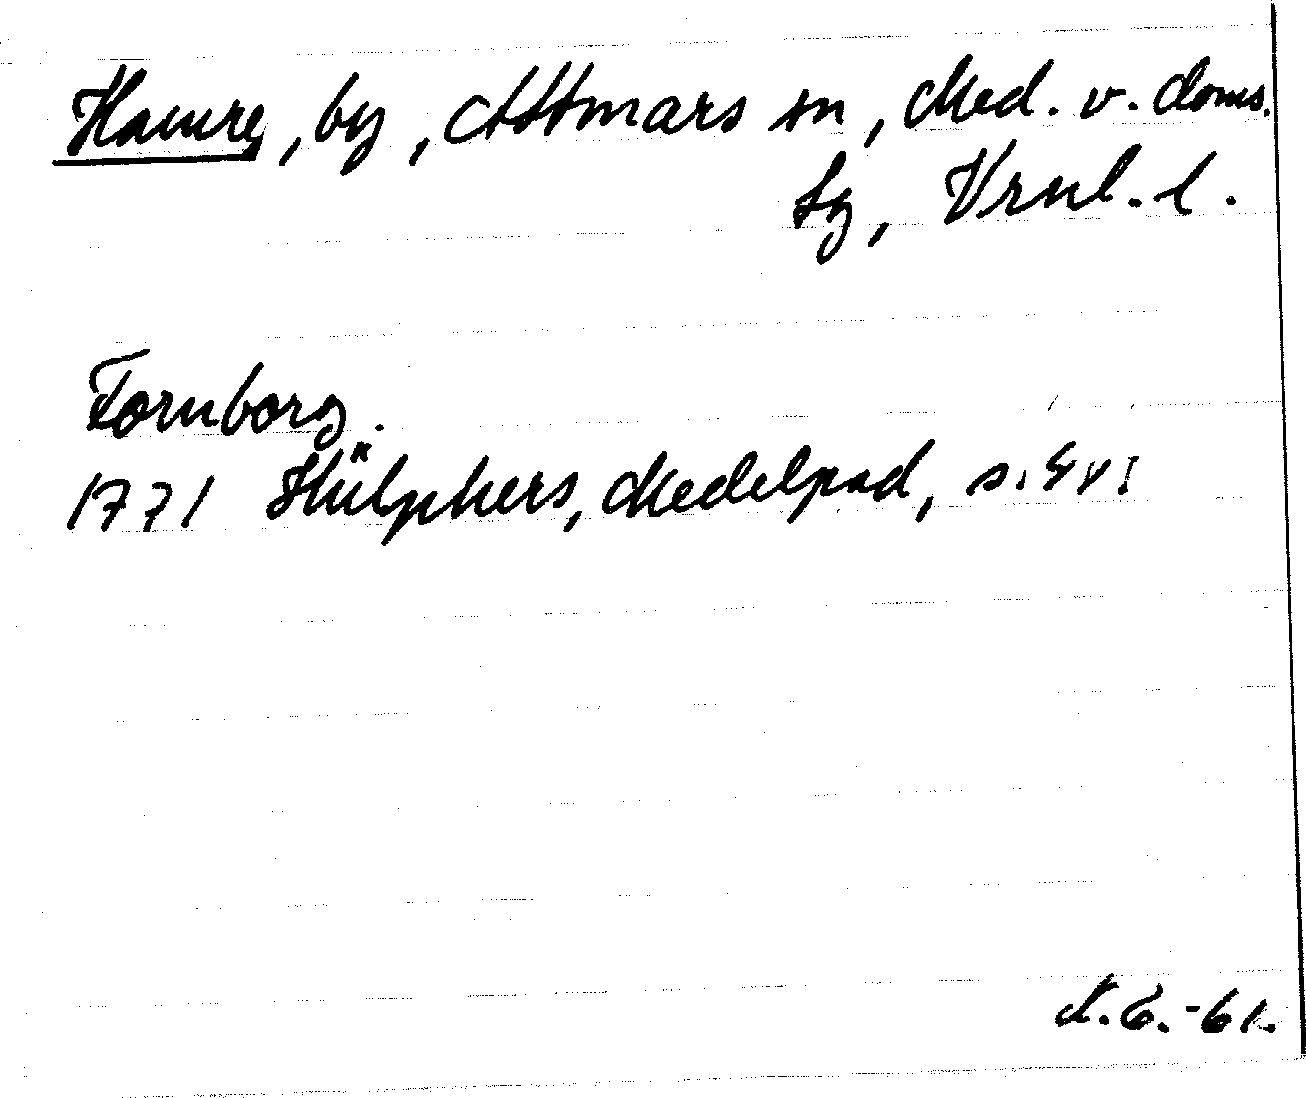 Hamre, by, Attmars sn, Med. v. doms.
sg, Vrnl. l.
Fornborg.
1771 Hülphers, Medelpad, s.
-61.